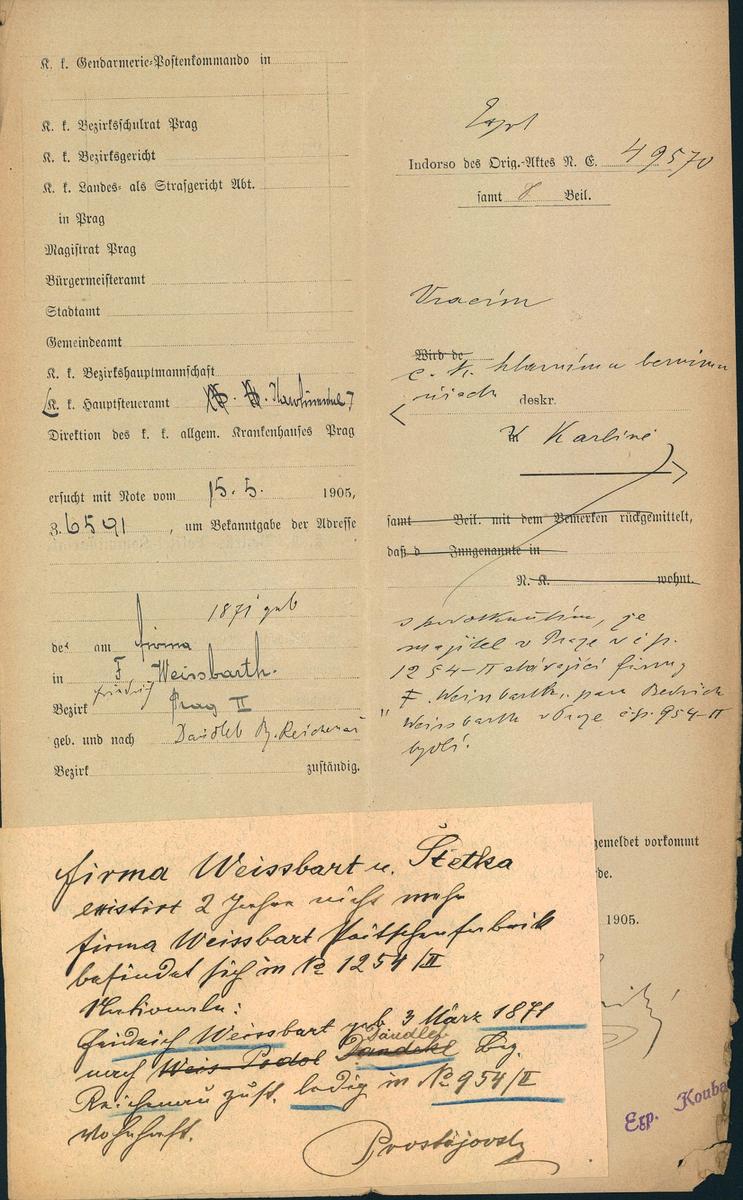 K. k. Gendarmerie-Postenkommando in
K. k. Bezirksschulrat Prag
K. k. Bezirksgericht
K. k. Landes- als Strafgericht Abt.
in Prag
Magistrat Prag
Bürgermeisteramt
Stadtamt
Gemeindeamt
K. k. Bezirkshauptmannschaft
K. k. Hauptsteueramt
Direktion des k. k. allgem. Krankenhauses Prag
ersucht mit Note vom 15. 5. 1905,
Z. 6591, um Bekanntgabe der Adresse
1871 geb
de am firma
in F Weissbarth.
Friedrich
Bezirk Prag II
geb. und nach Daudleb Bz. Reichenau
Bezirk zuständig.
Indorso des Orig.-Aktes N. E. 49570
samt 8 Beil.
Vracím
Wird de
c. k. hlavnímu bernímu
úřadu deskr.
v Karlíně
samt Beil. mit dem Bemerken rückgemittelt,
daß d Inngenannte in
N. K. wohnt.
s podotknutím, že
majitel v Praze v čp.
1254-II stávající firmy
F. Weissbarth, pan Bedřich
Weissbarth v Praze čp. 954-II
bydlí.
gemeldet vorkommt
de.
1905.
Exp. Kouba
firma Weissbart u. Štětka
existirt 2 Jahre nicht mehr
firma Weissbart Peitschenfabrik
befindet sich in No 1254/II
Nationale:
Friedrich Weissbart geb 3 März 1871
Daudleb
nach Weis-Podol Daudleb Bz.
Reichenau zust. ledig in No 954/II
wohnhaft.
Prostějovský